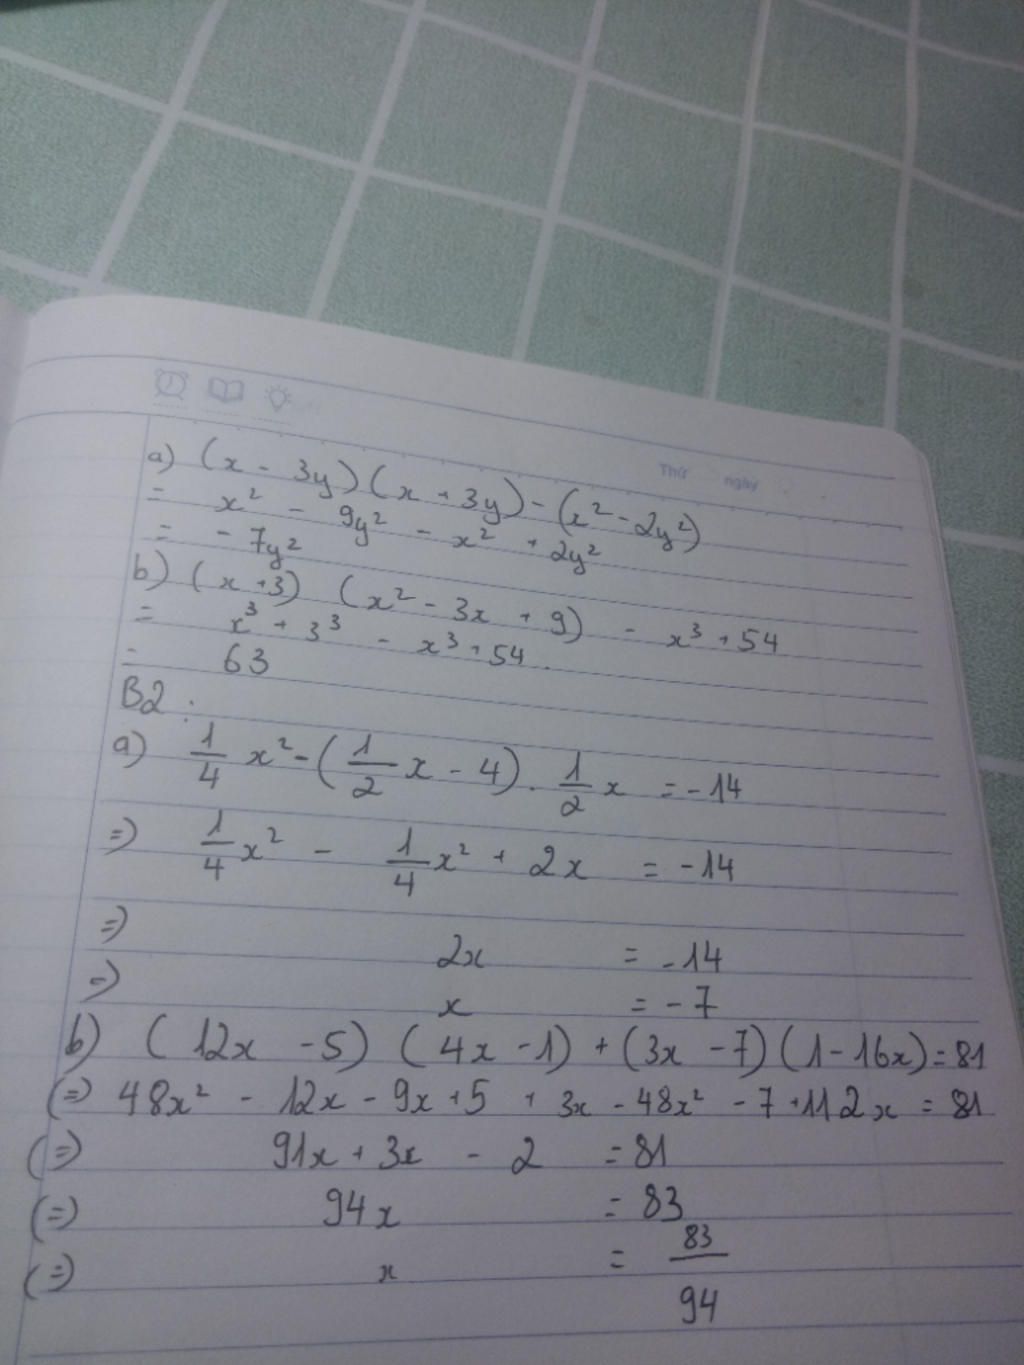 Thứ ngày
a) (x - 3y)(x + 3y) - (x² - 2y²)
= x² - 9y² - x² + 2y²
= - 7y²
b) (x + 3) (x² - 3x + 9) - x³ + 54
= x³ + 3³ - x³ + 54.
= 63
B2 :
a) 1/4 x² - (1/2 x - 4) . 1/2 x = - 14
=> 1/4 x² - 1/4 x² + 2x = - 14
=> 2x = - 14
=> x = - 7
b) (12x - 5) (4x - 1) + (3x - 7) (1 - 16x) = 81
(=) 48x² - 12x - 9x + 5 + 3x - 48x² - 7 + 112x = 81
(=) 91x + 3x - 2 = 81
(=) 94x = 83
(=) x = 83/94